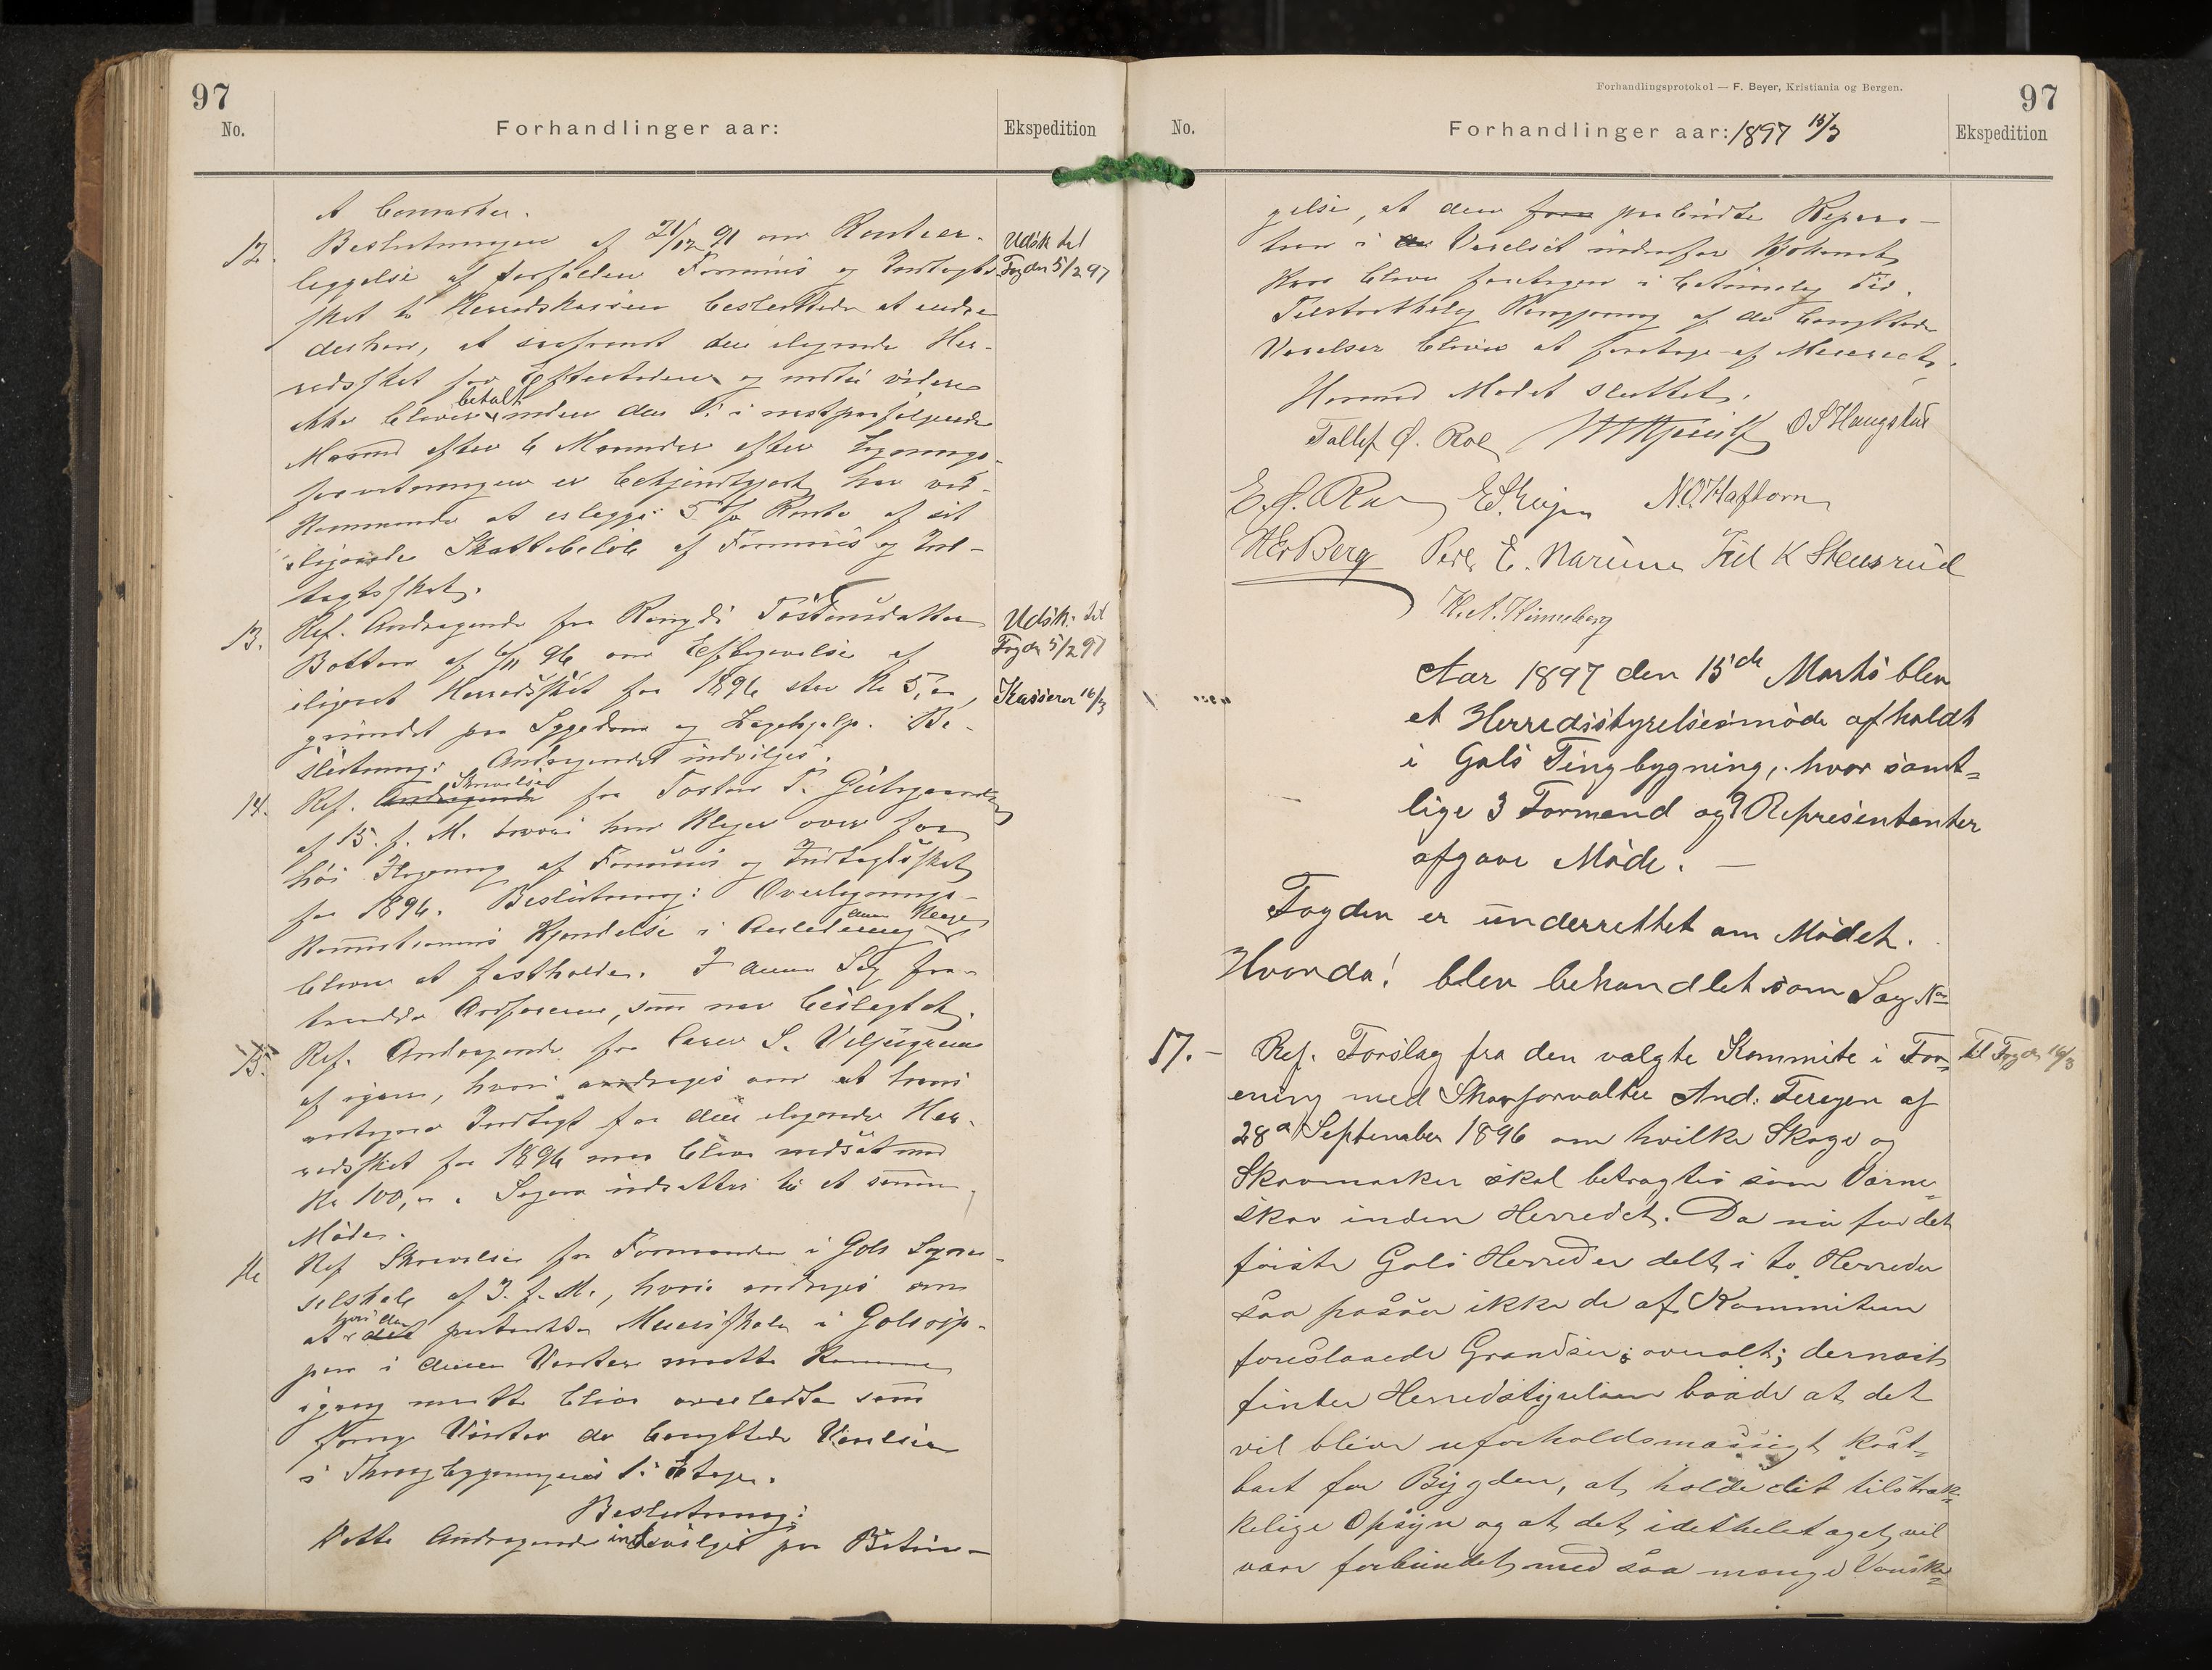 97
No.
Forhandlinger aar:
Ekspedition
at bemærke.
12. Beslutningen af 21/12 91 om Renteer-
læggelse af forfalden Formues og Indtægts-
skat til Herredskassen besluttedes at endre
derhen, at saafremt den ilignede Her-
redsskat for Eftertiden og indtil videre
ikke bliver betalt inden den 1. i næstpaafølgende
Maaned efter 6 Maaneder efter Lignings-
forretningen er bekjendtgjort, har ved-
kommende at erlægge 5 % Rente af sit
ilignede Skattebeløb af Formues og Ind-
tægtsskat.
Udsk. til
Fogden 5/2 97
13. Ref. Andragende fra Rangdi Tostensdatter
Botten af 6/11 96 om Eftergivelse af
ilignet Herredsskat for 1896 stor Kr 5,00,
grundet paa Sygdom og Lægehjælp. Be-
slutning: Andragendet indvilges.
Udsk. til
Fogden 5/2 97
Kasserer 16/3
14. Ref. Andragende Skrivelse fra Tosten T.
af 15. f. M. hvori han klager over for
høi Iligning af Formues og Indtægtsskat
for 1896. Beslutning: Overlignings-
kommissionens Kjendelse i Anledning denne Klage
bliver at fastholde. I denne Sag fra-
traadte Ordføreren, som var beslægtet.
15. Ref. Andragende fra S.
af igaar, hvori andrages om at hans
antagne Indtægt for den ilignede Her-
redsskat for 1896 maa blive nedsat med
Kr 100,00. Sagen udsættes til et senere
Møde.
16 Ref Skrivelse fra Formanden i Gols Sogne-
selskab af 3. f. M., hvori andrages om
at hvis den det paatænkte Meieriskole i Gol oip-
pen i denne Vinter maatte komme
igang maatte blive overladte som
forrige Vinter de benyttede Værelser
i Thingbygningens 1. Etage.
Beslutning:
Dette Andragende indvilges paa Betin-
Forhandlingsprotokol — F. Beyer, Kristiania og Bergen.
97
No.
Forhandlinger aar: 1897 15/3
Ekspedition
gelse, at den fore paabudte Repara-
tion i de Værelset indenfor Kjøkkenet
kan blive foretagen i betimelig Tid.
Tilstrækkelig Rengjøring af de benyttede
Værelser bliver at foretage af Meieriet.
Hermed Mødet sluttet.
Tollef Ø. Roe O S Haugstad
E. S. N.O. Haftorn
HEr Berg Peder E. Narum Fred K Stensrud
K. A. Himleberg
Aar 1897 den 15de Marts blev
et Herredsstyrelsesmøde afholdt
i Gols Tingbygning, hvor samt=
lige 3 Formænd og 9 Repræsentanter
afgave Møde. —
Fogden er underrettet om Mødet.
Hvorda! blev behandlet som Sag No
17. - Ref. Forslag fra den valgte Kommite i For=
ening med Skovforvalter And: Feragen af
28de September 1896 om hvilke Skoge og
Skovmarker skal betragtes som Værne=
skov inden Herredet. Da nu for det
første Gols Herred er delt i to Herreder
saa passer ikke de af Kommiteen
foreslaaede Grændser overalt; dernæst
finder Herredsstyrelsen baade at det
vil blive uforholdsmæssigt kost=
bart for Bygden, at holde det tilstræk=
kelige Opsyn og at det idetheletaget vil
være forbundet med saa mange Vanske=
til Fogden 16/3